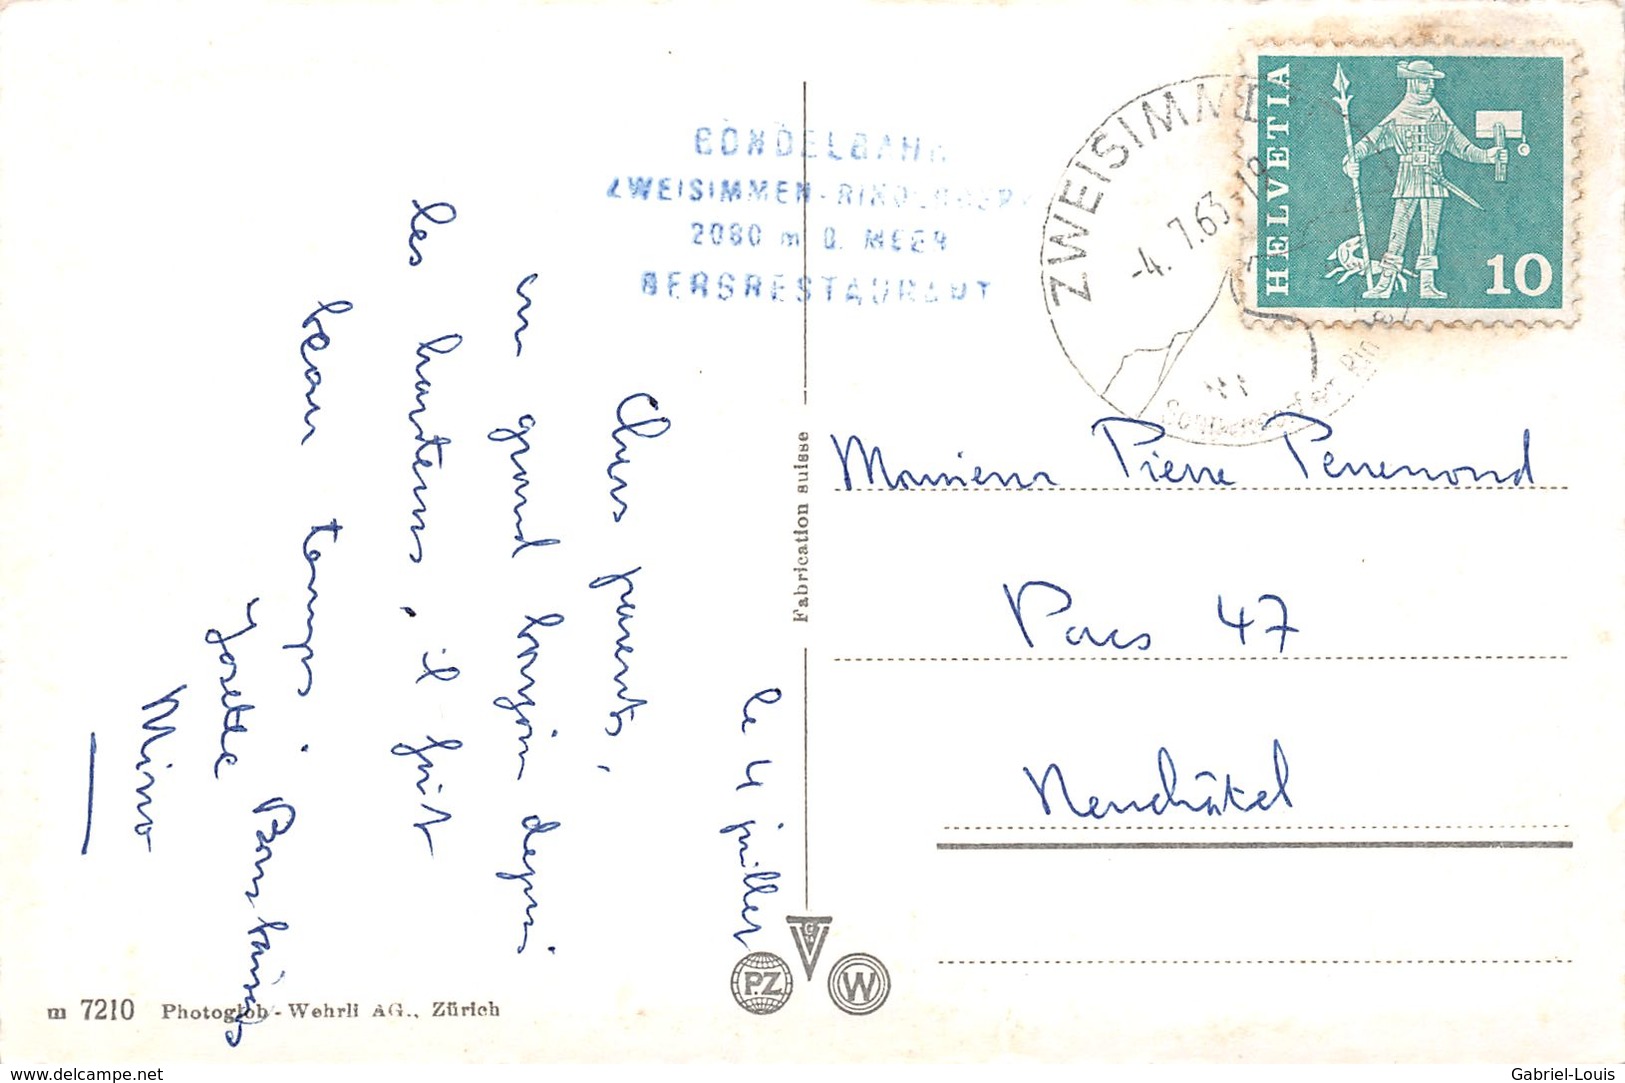 GONDELBAHN
ZWEISIMMEN-RINDERBERG
2080 m ü. MEER
BERGRESTAURANT
ZWEISIMMEN
-4. 7.63-18
HELVETIA
10
le 4 juillet
Chers parents,
un grand bonjour depuis
les hauteurs, il fait
beau temps.
Bons baisers
Josette
Mino
Monsieur Pierre Perrenoud
Parcs 47
Neuchâtel
Fabrication suisse
P.Z
W
m 7210 Photoglob-Wehrli AG., Zürich
delcampe.net
Gabriel-Louis